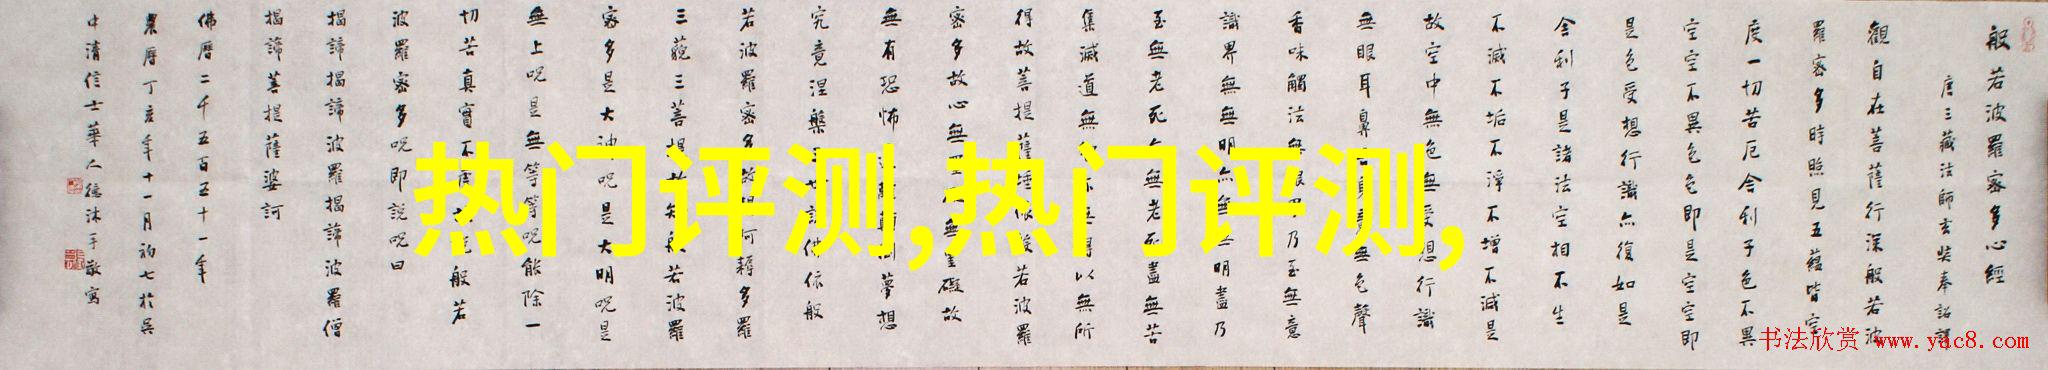 般若波羅密多心經
唐三藏法師玄奘奉詔譯
觀自在菩薩行深般若波
羅密多時照見五蘊皆空
度一切苦厄舍利子色不異
空空不異色色即是空空即
是色受想行識亦復如是
舍利子是諸法空相不生
不滅不垢不淨不增不減是
故空中無色無受想行識
無眼耳鼻舌身意無色聲
香味觸法無眼界乃至無意
識界無無明亦無無明盡乃
至無老死亦無老死盡無苦
集滅道無智亦無得以無所
得故菩提薩埵依般若波羅
密多故心無罣礙無罣礙故
無有恐怖遠離顛倒夢想
究竟涅槃三世諸佛依般
若波羅密多故得阿耨多羅
三藐三菩提故知般若波羅
密多是大神呪是大明呪是
無上呪是無等等呪能除一
切苦真實不虛故說般若
波羅密多呪即說呪曰
揭諦揭諦波羅揭諦波羅僧
揭諦菩提薩婆訶
佛曆二千五百五十一年
農曆丁亥年十一月初七於吳
中清信士華人德沐手敬寫
热门评测,热门评测,
书法欣赏 www.yac8.com